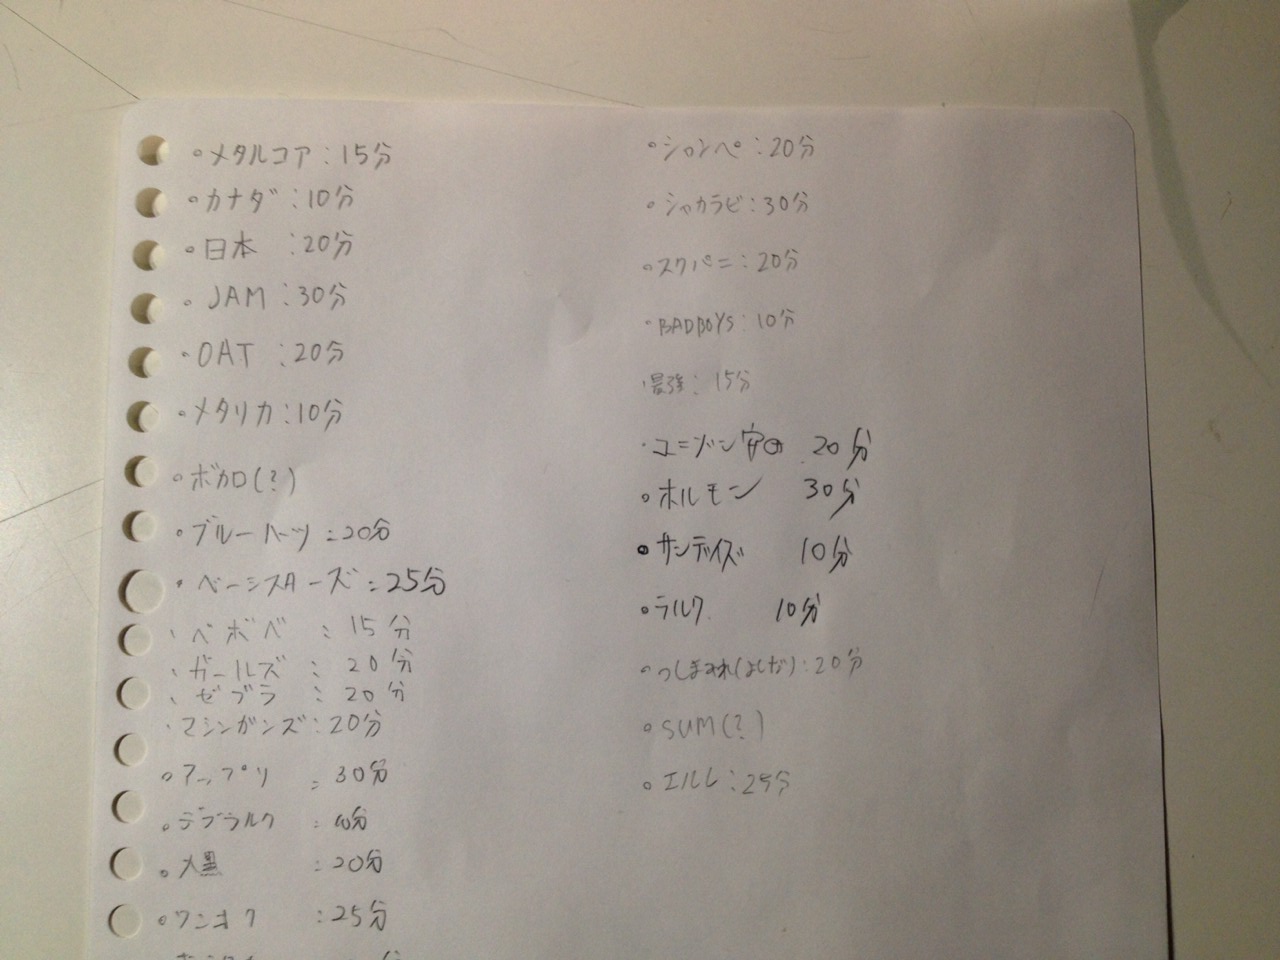 ・メタルコア:15分
・カナダ:10分
・日本 :20分
・JAM:30分
・OAT :20分
・メタリカ:10分
・ボカロ(?)
・ブルーハーツ:20分
・ベーシスターズ:25分
・ベボベ :15分
・ガールズ :20分
・ゼブラ :20分
・マシンガンズ:20分
・アップリ :30分
・デブラルク :10分
・大黒 :20分
・ワンオク :25分
・シロンペ:20分
・シャカラビ:30分
・スクパニ:20分
・BADBOYS:10分
・最強:15分
・ユニゾン 20分
・ホルモン 30分
・サンデイズ 10分
・ラルク 10分
・つしまみれ(よしだ):20分
・SUM(?)
・エルレ:25分